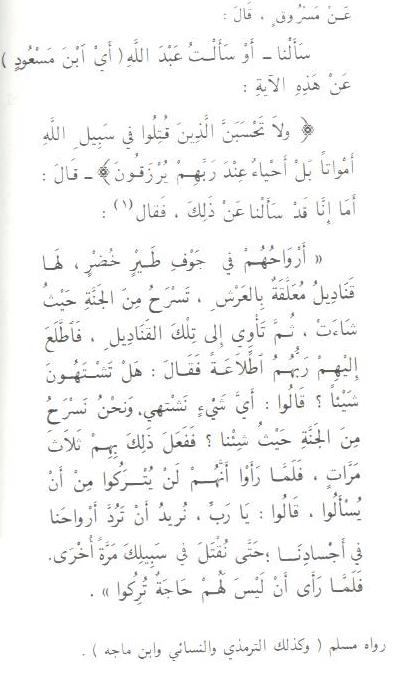 عَنْ مَسْرُوقٍ ، قَالَ :
سَأَلْنا – أَوْ سَأَلْتُ عَبْدَ اللَّهِ ( أَيْ ابْنَ مَسْعُودٍ )
عَنْ هَذِهِ الآيَةِ :
﴿ ولاَ تَحْسَبَنَّ الَّذِينَ قُتِلُوا في سَبِيلِ اللَّهِ
أَمْوَاتاً بَلْ أَحْيَاءٌ عِنْدَ رَبِّهِمْ يُرْزَقُونَ ﴾ – قَالَ :
أَمَا إِنَّا قَدْ سَأَلْنا عَنْ ذَلِكَ ، فَقال (١) :
« أَرْوَاحُهُمْ في جَوْفِ طَيْرٍ خُضْرٍ ، لَهَا
قَنَادِيلُ مُعَلَّقَةٌ بِالعَرْشِ ، تَسْرَحُ مِنَ الجَنَّةِ حَيْثُ
شَاءَتْ ، ثُمَّ تَأْوِى إِلى تِلْكَ القَنَادِيلِ ، فَاطَّلَعَ
إِلَيْهِمْ رَبُّهُمُ اطِّلَاعَةً فَقَالَ : هَلْ تَشْتَهُونَ
شَيْئاً ؟ قَالُوا : أَيَّ شَيْءٍ نَشْتَهِي، وَنَحْنُ نَسْرَحُ
مِنَ الجَنَّةِ حَيْثُ شِئْنا ؟ فَفَعَلَ ذَلِكَ بِهِمْ ثَلَاثَ
مَرَّاتٍ ، فَلَمَّا رَأَوْا أَنَّهُمْ لَنْ يُتْرَكُوا مِنْ أَنْ
يُسْأَلُوا ، قَالُوا : يَا رَبِّ ، نُرِيدُ أَنْ تَرُدَّ أَرْواحَنا
في أَجْسادِنَا ؛ حَتَّى نُقْتَلَ في سَبِيلِكَ مَرَّةً أُخْرَى.
فَلَمَّا رَأَى أَنْ لَيْسَ لَهُمْ حَاجَةٌ تُرِكُوا » .
رواه مسلم ( وكذلك الترمذي والنسائي وابن ماجه ) .